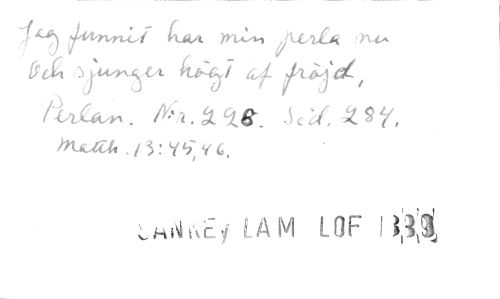 Jag funnit har min perla nu
Och sjunger högt af fröjd,
Perlan. N:r. 228. Sid. 284.
Matth. 13:45,46.
SANKEY LAM LOF 1889